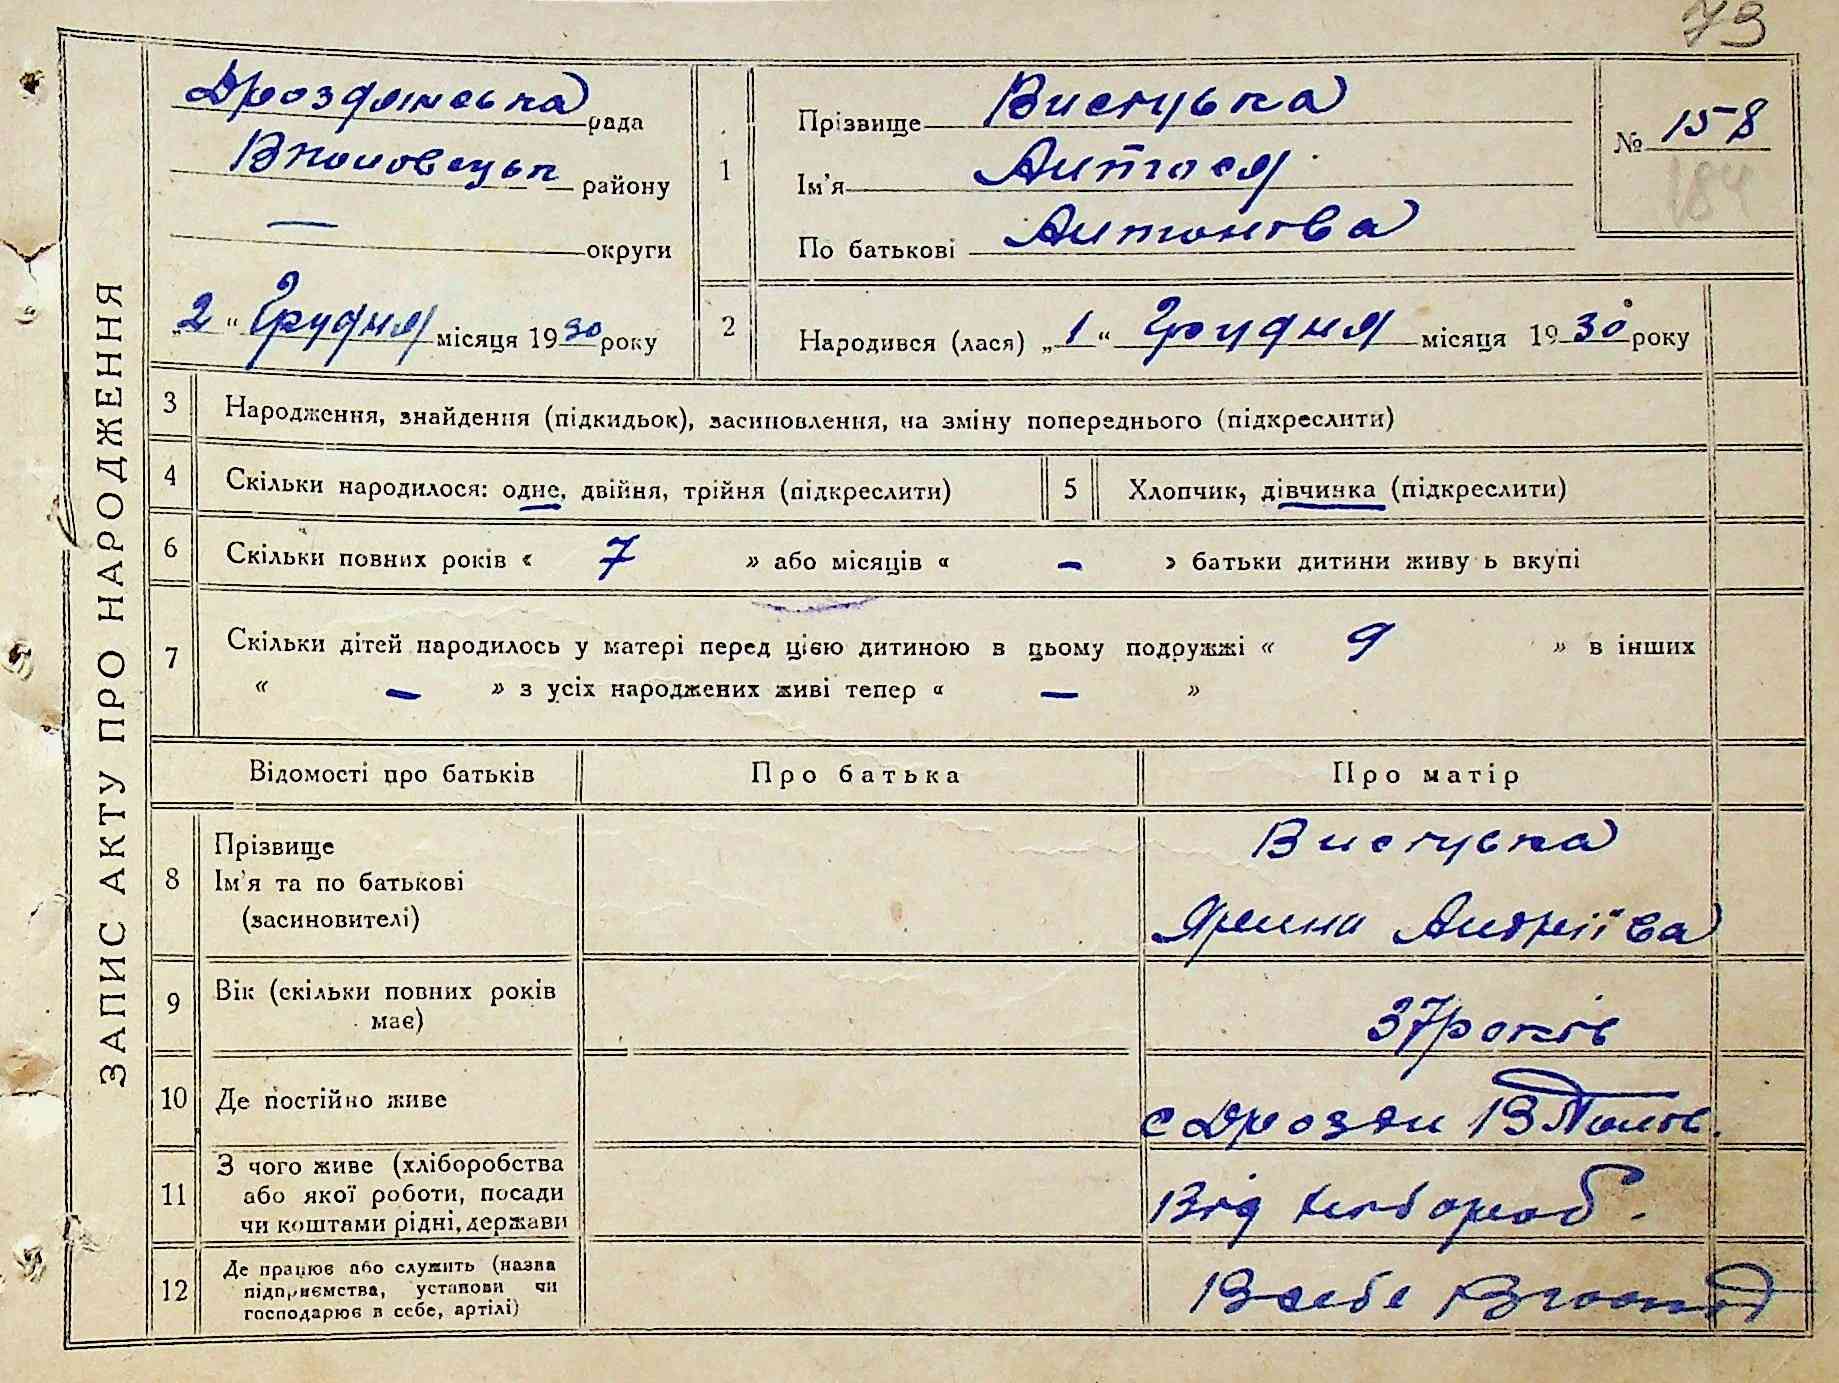 73
ЗАПИС АКТУ ПРО НАРОДЖЕННЯ
Дрозднянська рада
району
— округи
„2“ Грудня місяця 1930 року
1
Прізвище Виступка
Ім'я Антося
По батькові Антонова
№ 158
184
2
Народився (лася) „1“ Грудня місяця 1930 року
3 Народження, знайдення (підкидьок), засиновлення, на зміну попереднього (підкреслити)
4 Скільки народилося: одне, двійня, трійня (підкреслити)
5 Хлопчик, дівчинка (підкреслити)
6 Скільки повних років « 7 » або місяців « – » батьки дитини живу ь вкупі
7 Скільки дітей народилось у матері перед цією дитиною в цьому подружжі « 9 » в інших
« – » з усіх народжених живі тепер « – »
Відомості про батьків Про батька Про матір
8 Прізвище
Ім'я та по батькові
(засиновителі)
Виступка
Ярина Андріїва
9 Вік (скільки повних років
має)
37 років
10 Де постійно живе
с Дрозди
11 З чого живе (хліборобства
або якої роботи, посади
чи коштами рідні, держави
Від хлібороб.
12 Де працює або служить (назва
підприємства, установи чи
господарює в себе, артілі)
В себе